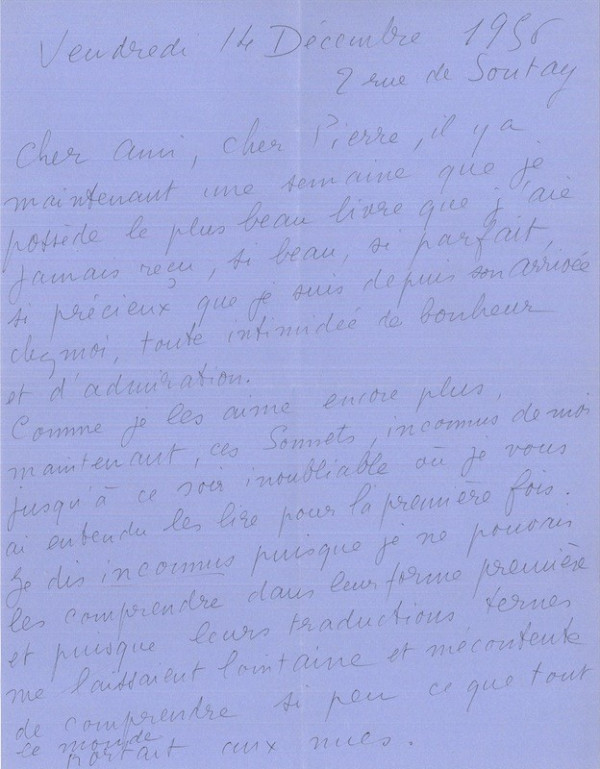 Vendredi 14 Décembre 1956
2 rue de Sontay
Cher ami, cher Pierre, il y a
maintenant une semaine que je
possède le plus beau livre que j'aie
jamais reçu, si beau, si parfait,
si précieux que je suis depuis son arrivée
chez moi, toute intimidée de bonheur
et d'admiration.
Comme je les aime encore plus,
maintenant, ces Sonnets, inconnus de moi
jusqu'à ce soir inoubliable où je vous
ai entendu les lire pour la première fois.
Je dis inconnus puisque je ne pouvais
les comprendre dans leur forme première
et puisque leurs traductions ternes
me laissaient lointaine et mécontente
de comprendre si peu ce que tout
le monde
portait aux nues.